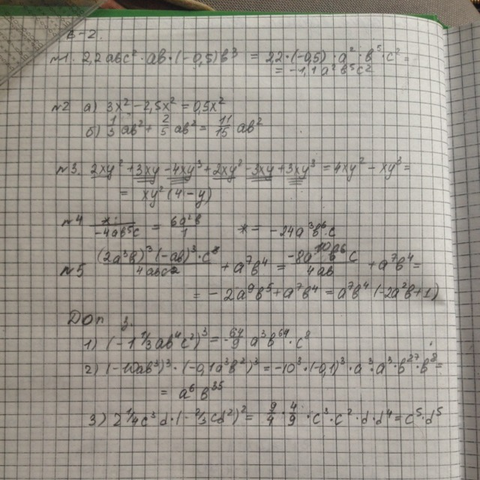 В-2.
№1. 2,2abc²·ab·(-0,5)b³ = 2,2·(-0,5)·a²·b⁵·c² =
= -1,1a²b⁵c²
№2 а) 3x² - 2,5x² = 0,5x²
б) 1/3 ab² + 2/5 ab² = 11/15 ab²
№3. 2xy² + 3xy - 4xy³ + 2xy² - 3xy + 3xy³ = 4xy² - xy³ =
= xy²(4-y)
№4 */-4ab⁵c = 6a²b/1 * = -24a³b⁶c
№5 (2a³b)³(-ab)³·c⁸/4abc² + a⁷b⁴ = -8a¹⁰b⁶c/4ab + a⁷b⁴ =
= -2a⁹b⁵ + a⁷b⁴ = a⁷b⁴(-2a²b+1)
Доп з.
1) (-1 1/3 ab⁴c²)³ = -64/9 a³b⁶⁴·c⁸
2) (-10ab³)³·(-0,1a³b²)³ = -10³·(-0,1)³·a³·a³·b²⁷·b⁸ =
= a⁶b³⁵
3) 2 1/4c³d·(-2/3cd²)² = 9/4·4/9·c³·c²·d·d⁴ = c⁵·d⁵